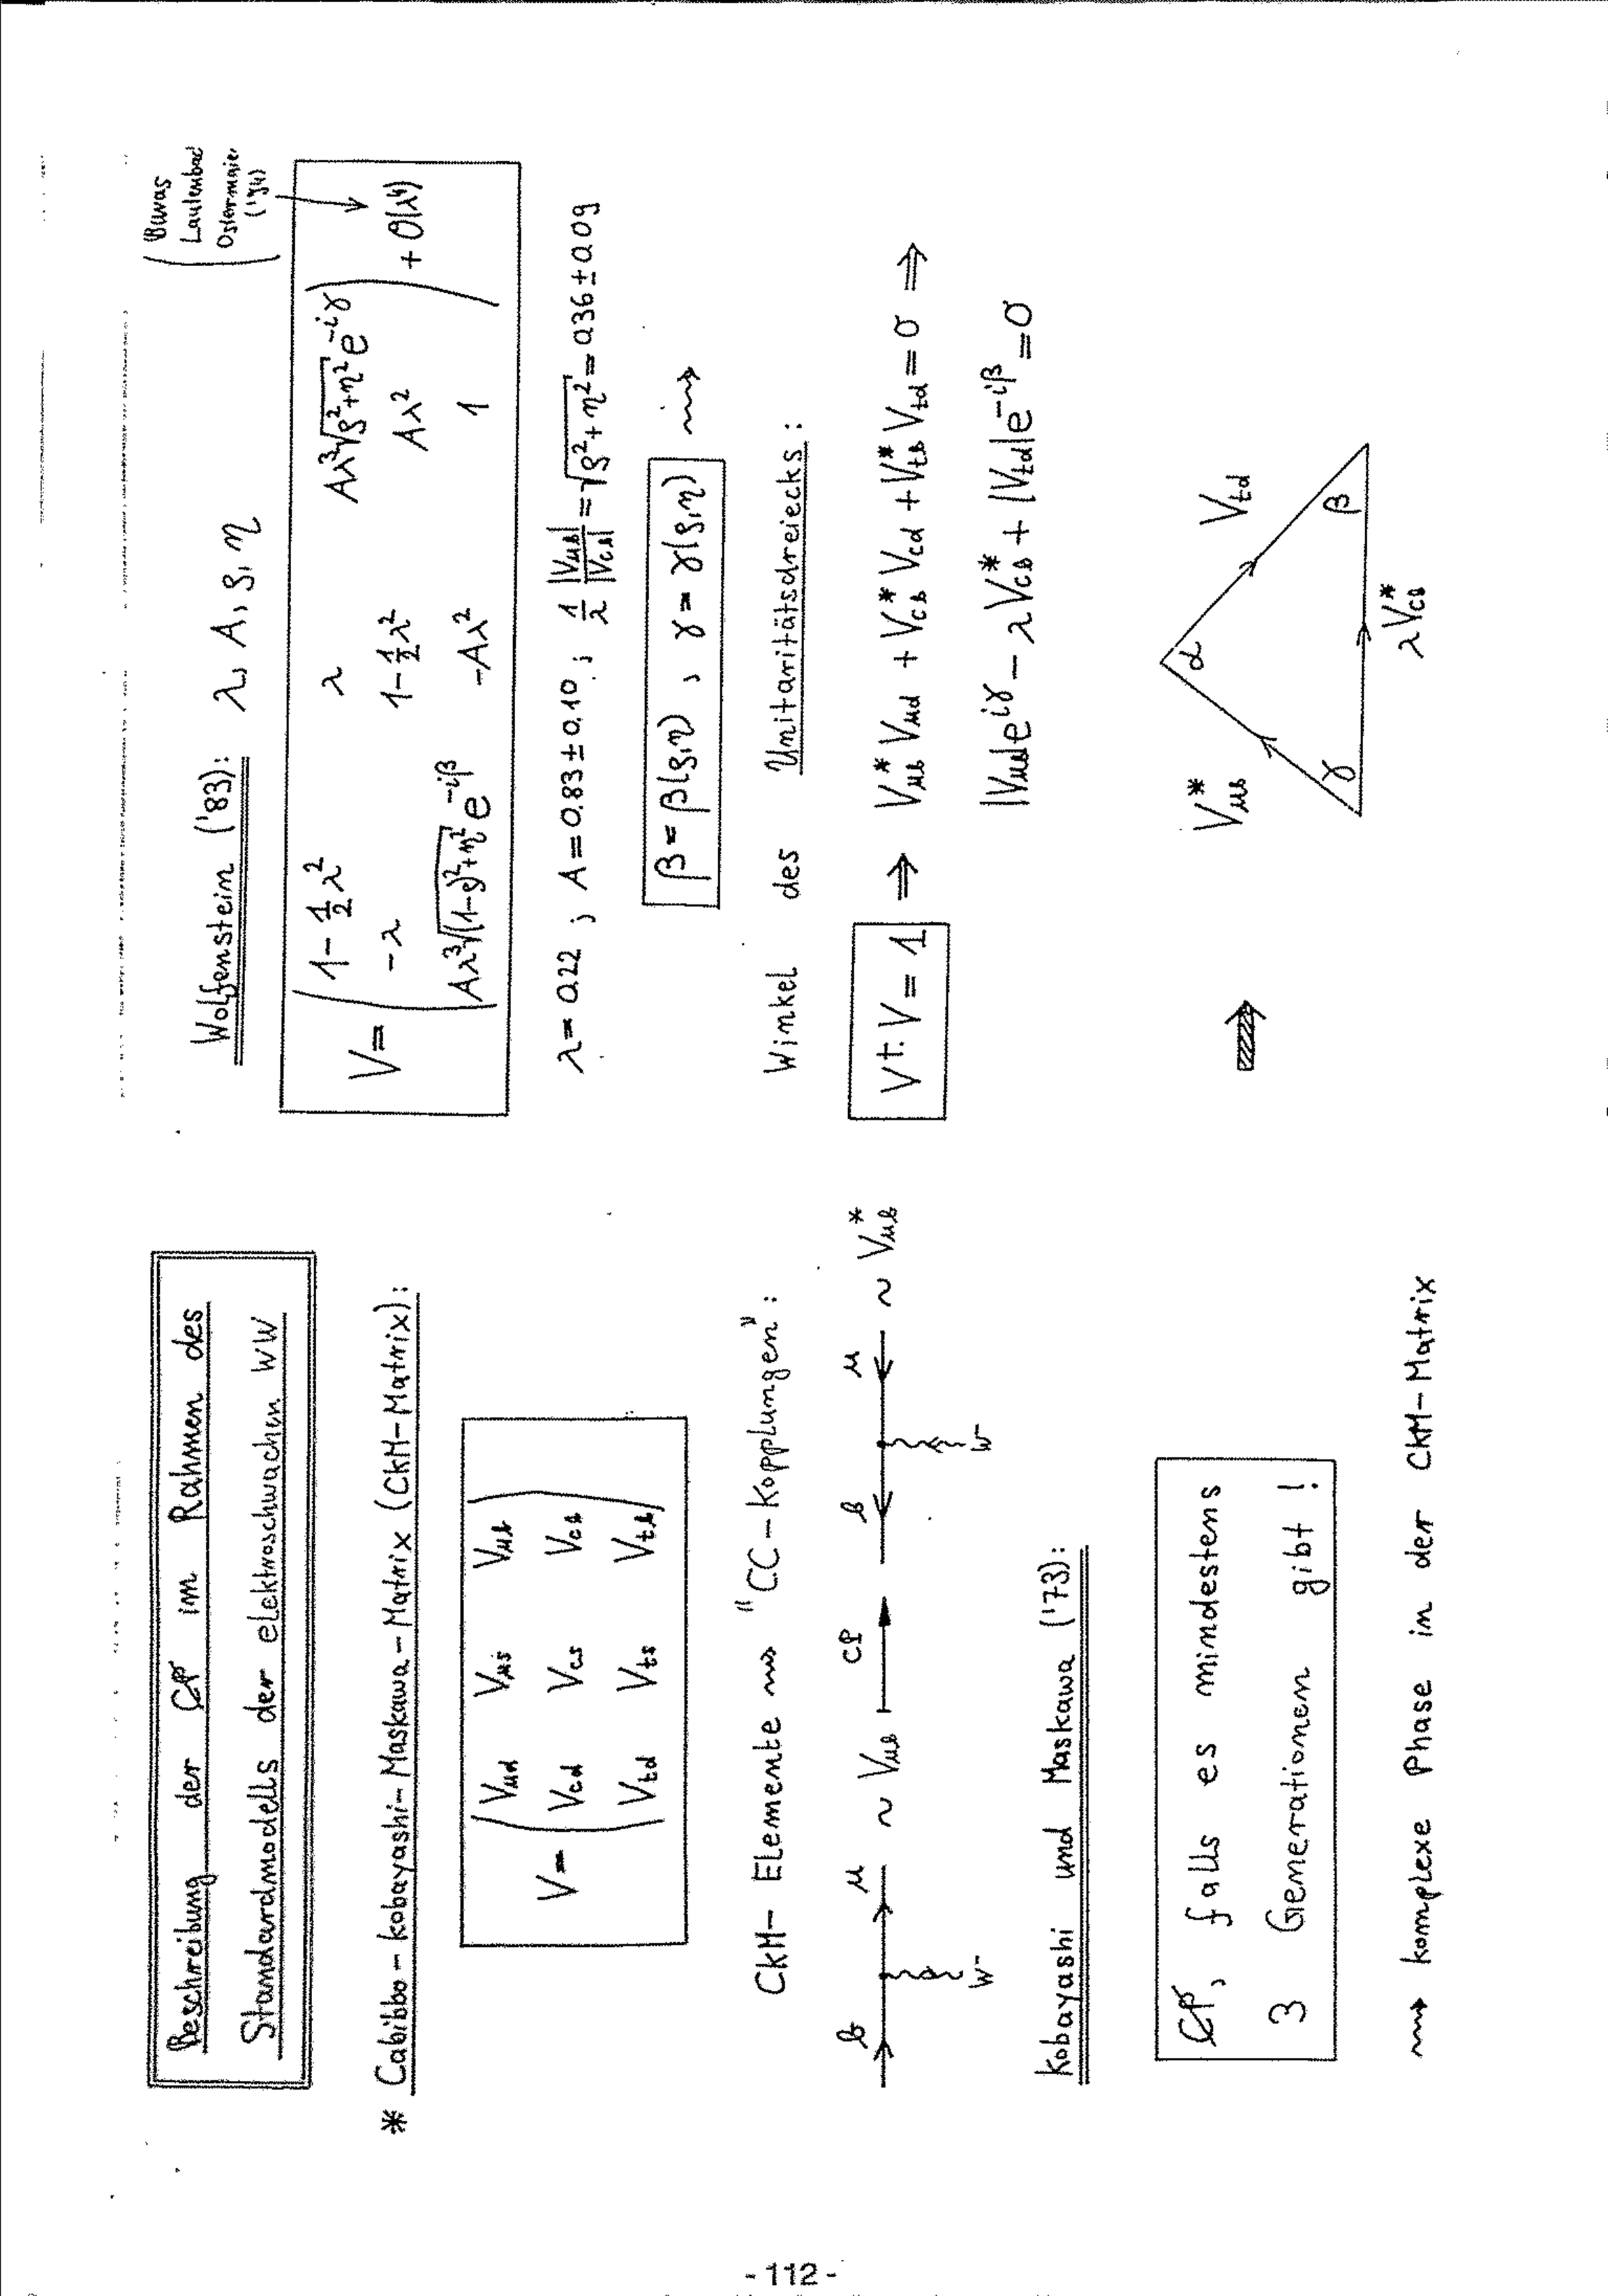 Beschreibung der C̸P̸ im Rahmen des
Standardmodells der elektroschwachen WW
* Cabibbo-Kobayashi-Maskawa-Matrix (CKM-Matrix):
V = ( V_ud V_us V_ub
V_cd V_cs V_cb
V_td V_ts V_tb )
CKM-Elemente ⇝ "CC-Kopplungen":
b u ~ V_ub CP b u ~ V_ub*
W⁻ W⁻
Kobayashi und Maskawa ('73):
C̸P̸, falls es mindestens
3 Generationen gibt !
⇝ komplexe Phase in der CKM-Matrix
(Buras
Lautenbac
Ostermaie
('94)
Wolfenstein ('83): λ, A, ϱ, η
V = ( 1-½λ² λ Aλ³√(ϱ²+η²) e^(-iγ)
-λ 1-½λ² Aλ²
Aλ³√((1-ϱ)²+η²) e^(-iβ) -Aλ² 1 ) + O(λ⁴)
λ = 0.22 ; A = 0.83 ± 0.10 ; 1/λ |V_ub|/|V_cb| = √(ϱ²+η²) = 0.36 ± 0.09
β = β(ϱ,η) , γ = γ(ϱ,η) ⇝
Winkel des Unitaritätsdreiecks:
V†·V = 1 ⇒ V_ub* V_ud + V_cb* V_cd + V_tb* V_td = 0 ⇒
|V_ub|e^(iγ) - λV_cb* + |V_td|e^(-iβ) = 0
⇒ V_ub* α V_td
γ β
λV_cb*
- 112 -